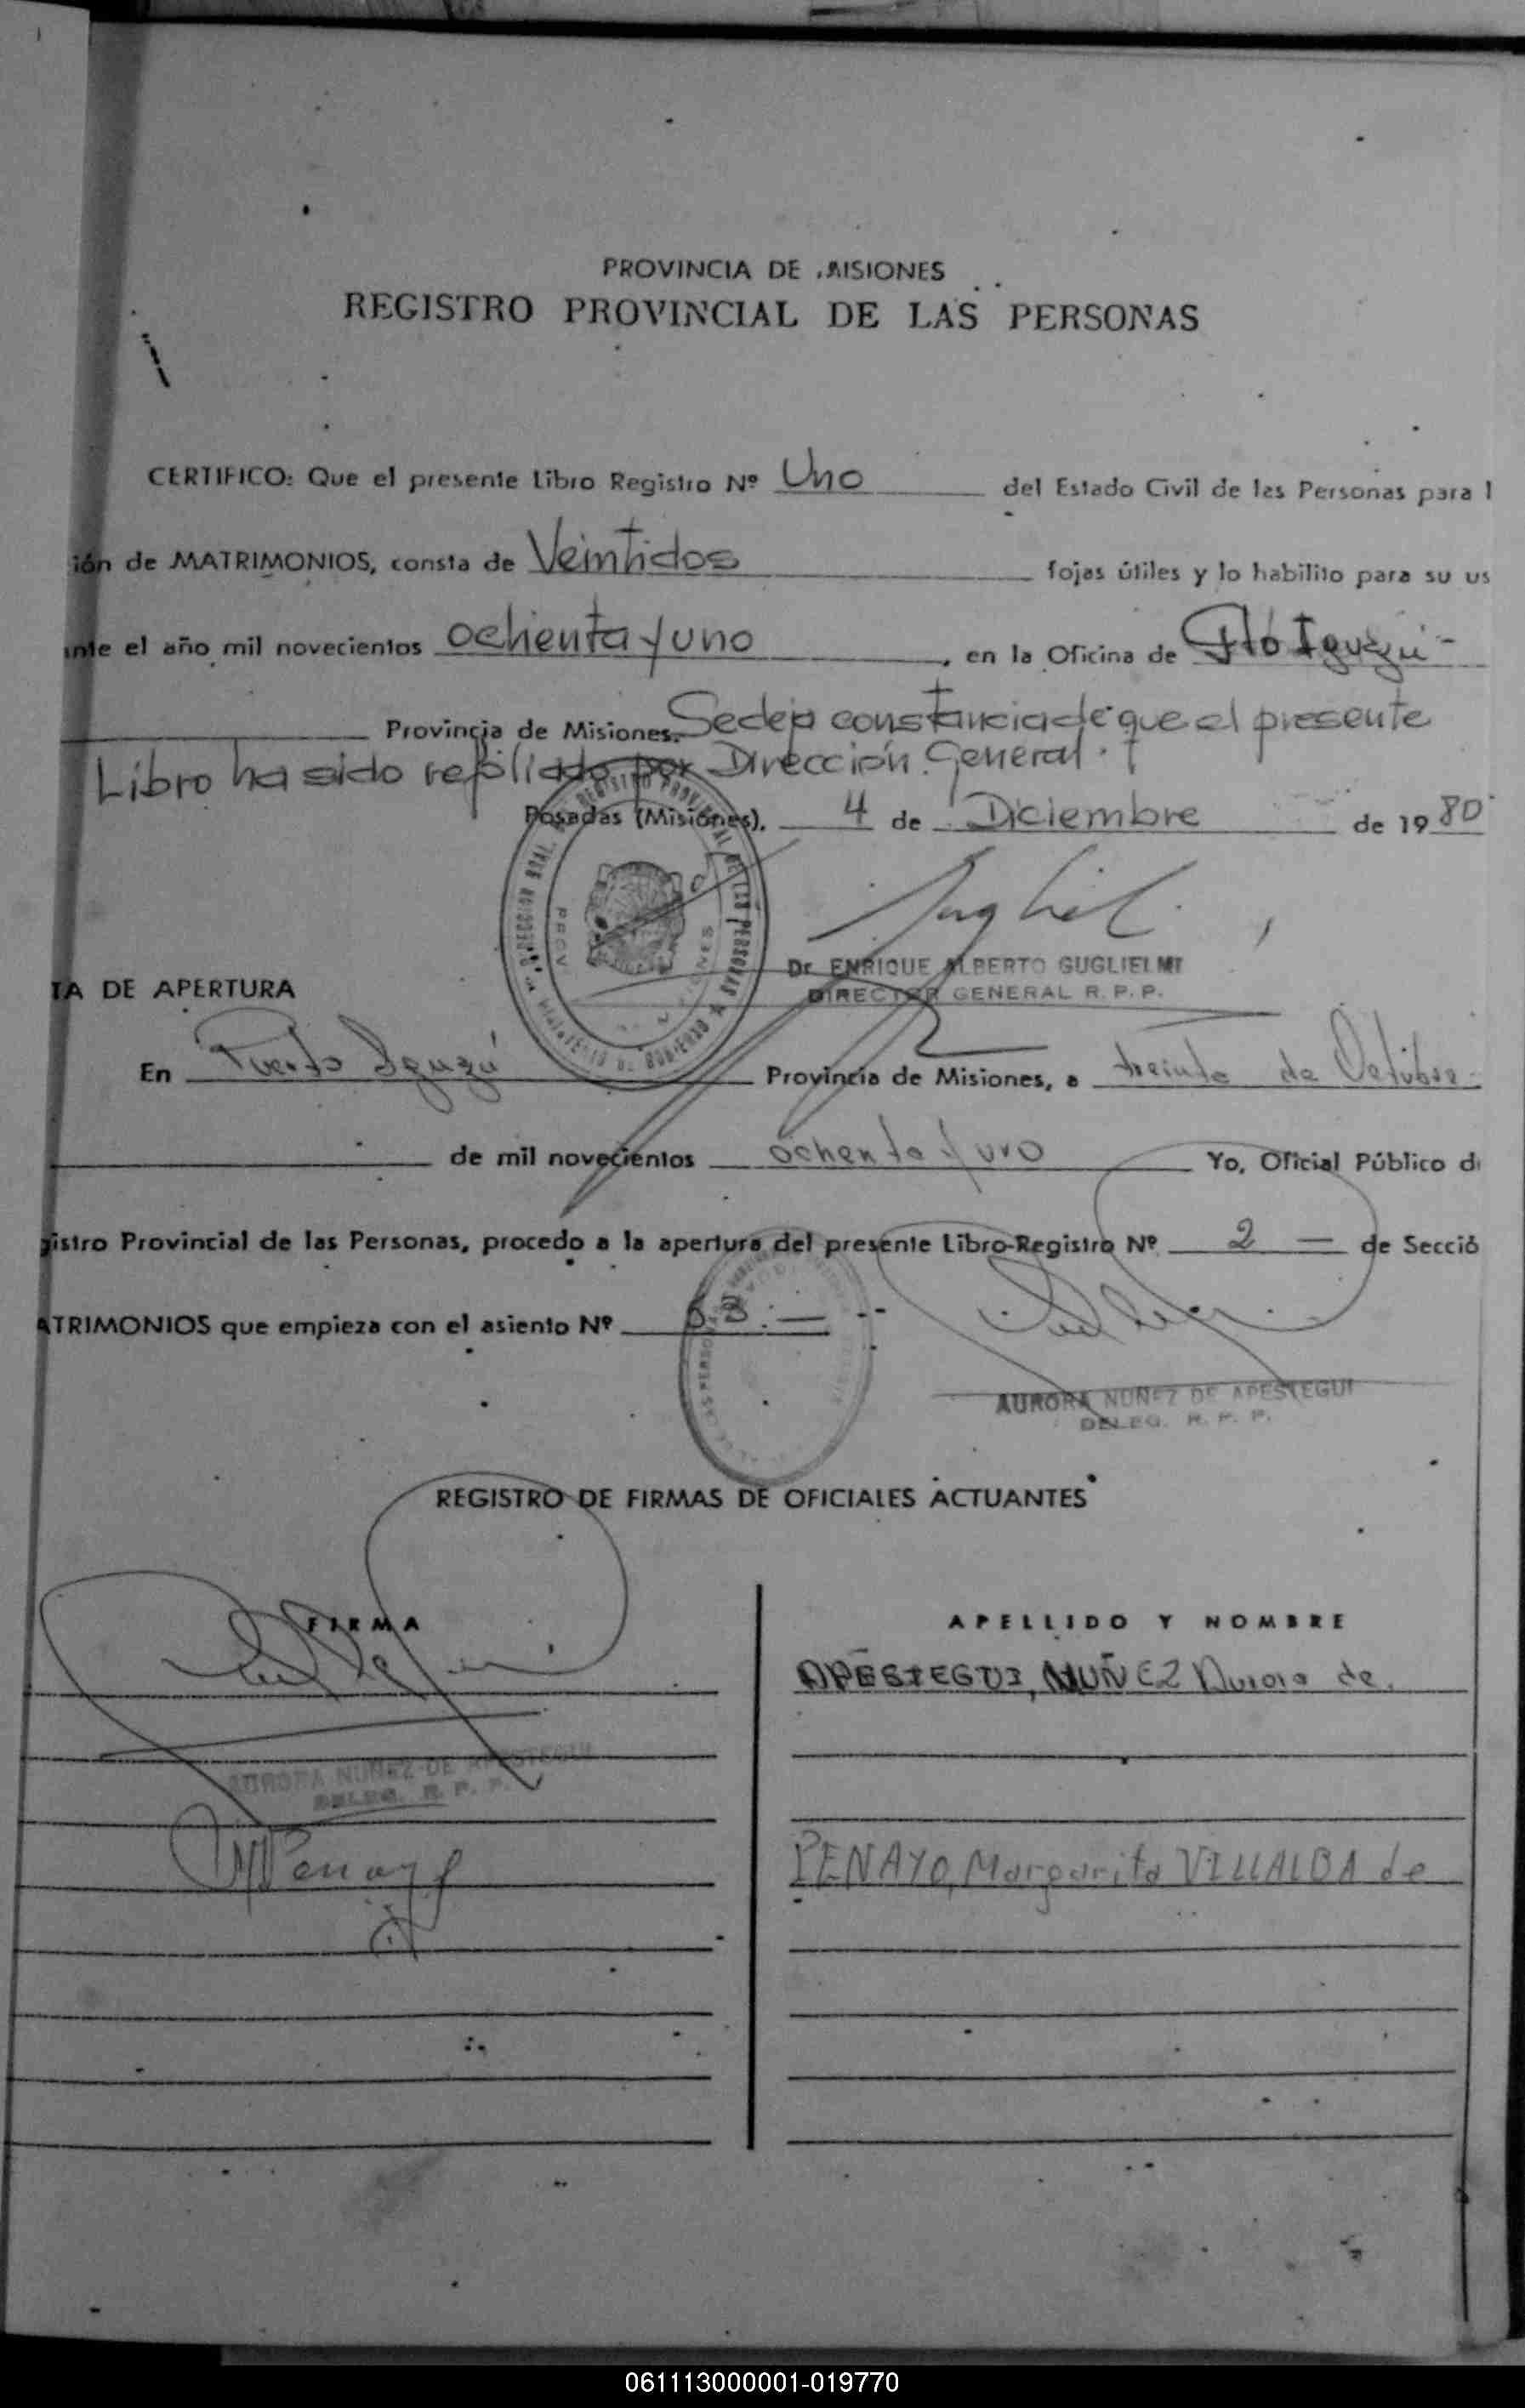 PROVINCIA DE MISIONES
REGISTRO PROVINCIAL DE LAS PERSONAS
CERTIFICO: Que el presente Libro Registro Nº Uno del Estado Civil de las Personas para l
ión de MATRIMONIOS, consta de Veintidos fojas útiles y lo habilito para su us
ante el año mil novecientos ochenta y uno, en la Oficina de Pto Iguazú -
Provincia de Misiones. Se deja constancia de que el presente
Libro ha sido refoliado por Dirección General.
Posadas (Misiones), 4 de Diciembre de 1980
Dr. ENRIQUE ALBERTO GUGLIELMI
DIRECTOR GENERAL R. P. P.
TA DE APERTURA
En Puerto Iguazú Provincia de Misiones, a treinta de Octubre
de mil novecientos ochenta y uno Yo, Oficial Público d
gistro Provincial de las Personas, procedo a la apertura del presente Libro-Registro Nº 2 — de Secció
ATRIMONIOS que empieza con el asiento Nº
AURORA NUÑEZ DE APESTEGUI
DELEG. R. P. P.
REGISTRO DE FIRMAS DE OFICIALES ACTUANTES
FIRMA APELLIDO Y NOMBRE
APESTEGUI, NUÑEZ Aurora de
AURORA NUÑEZ DE APESTEGUI
DELEG. R. P. P.
MPenayo PENAYO, Margarita VILLALBA de
061113000001-019770